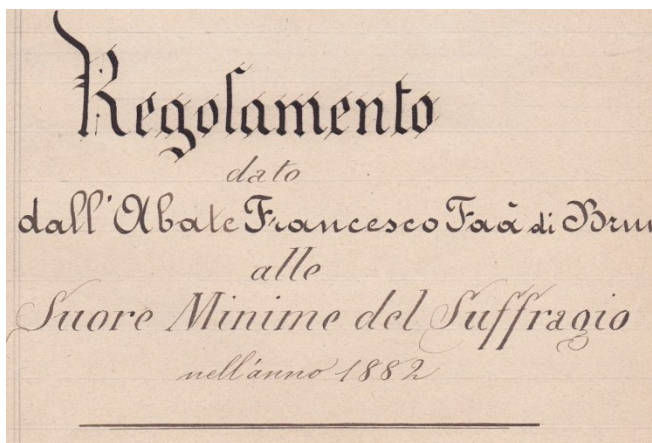 Regolamento
dato
dall'Abate Francesco Faà di Brun
alle
Suore Minime del Suffragio
nell'anno 1882